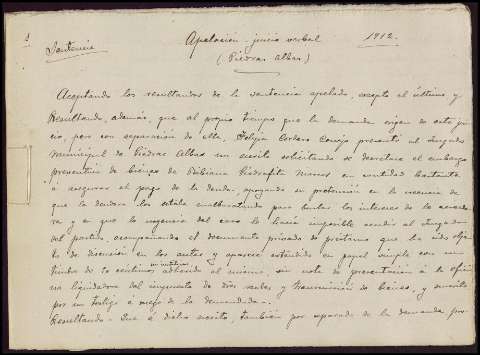 Sentencia
Apelacion - juicio verbal 1912.
(Piedras Albas)
Aceptando los resultandos de la sentencia apelada, excepto el último y
Resultando, además, que al propio tiempo que la demanda origen de este jui
cio, pero con separación de ella, Felipa Cordero Conejo presentó al Juzgado
Municipal de Piedras Albas un escrito solicitando se decretara el embargo
preventivo de bienes de Bibiana Piedrafita Moreno en cantidad bastante
á asegurar el pago de la deuda, apoyando su pretension en la creencia de
que la deudora los estaba malbaratando para burlar los intereses de la acreedo
ra y en que la urgencia del caso le hacía imposible acudir al Juzgado
del partido, acompañando el documento privado de préstamo que ha sido obje
to de discusión en los autos y aparece extendido en papel simple con un
timbre de 10 céntimos adherido al mismo, sin nota de presentación á la ofici
na liquidadora del impuesto de dros reales y transmisión de bienes, y suscrito
por un testigo á ruego de la demandada.
Resultando - Que á dicho escrito, también por separado de la demanda pro-